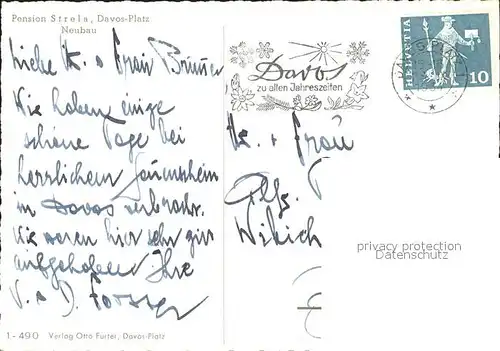 Pension Strela, Davos-Platz
Neubau
Liebe Hr. + Frau Brunner
Wir haben einige
schöne Tage bei
herrlichem Sonnenschein
in Davos verbracht.
Wir waren hier sehr gut
aufgehoben Ihre
V. + D. Forster
1-490 Verlag Otto Furter, Davos-Platz
Davos
zu allen Jahreszeiten
DAVOS PLATZ
HELVETIA
10
Hr. + Frau
privacy protection
Datenschutz